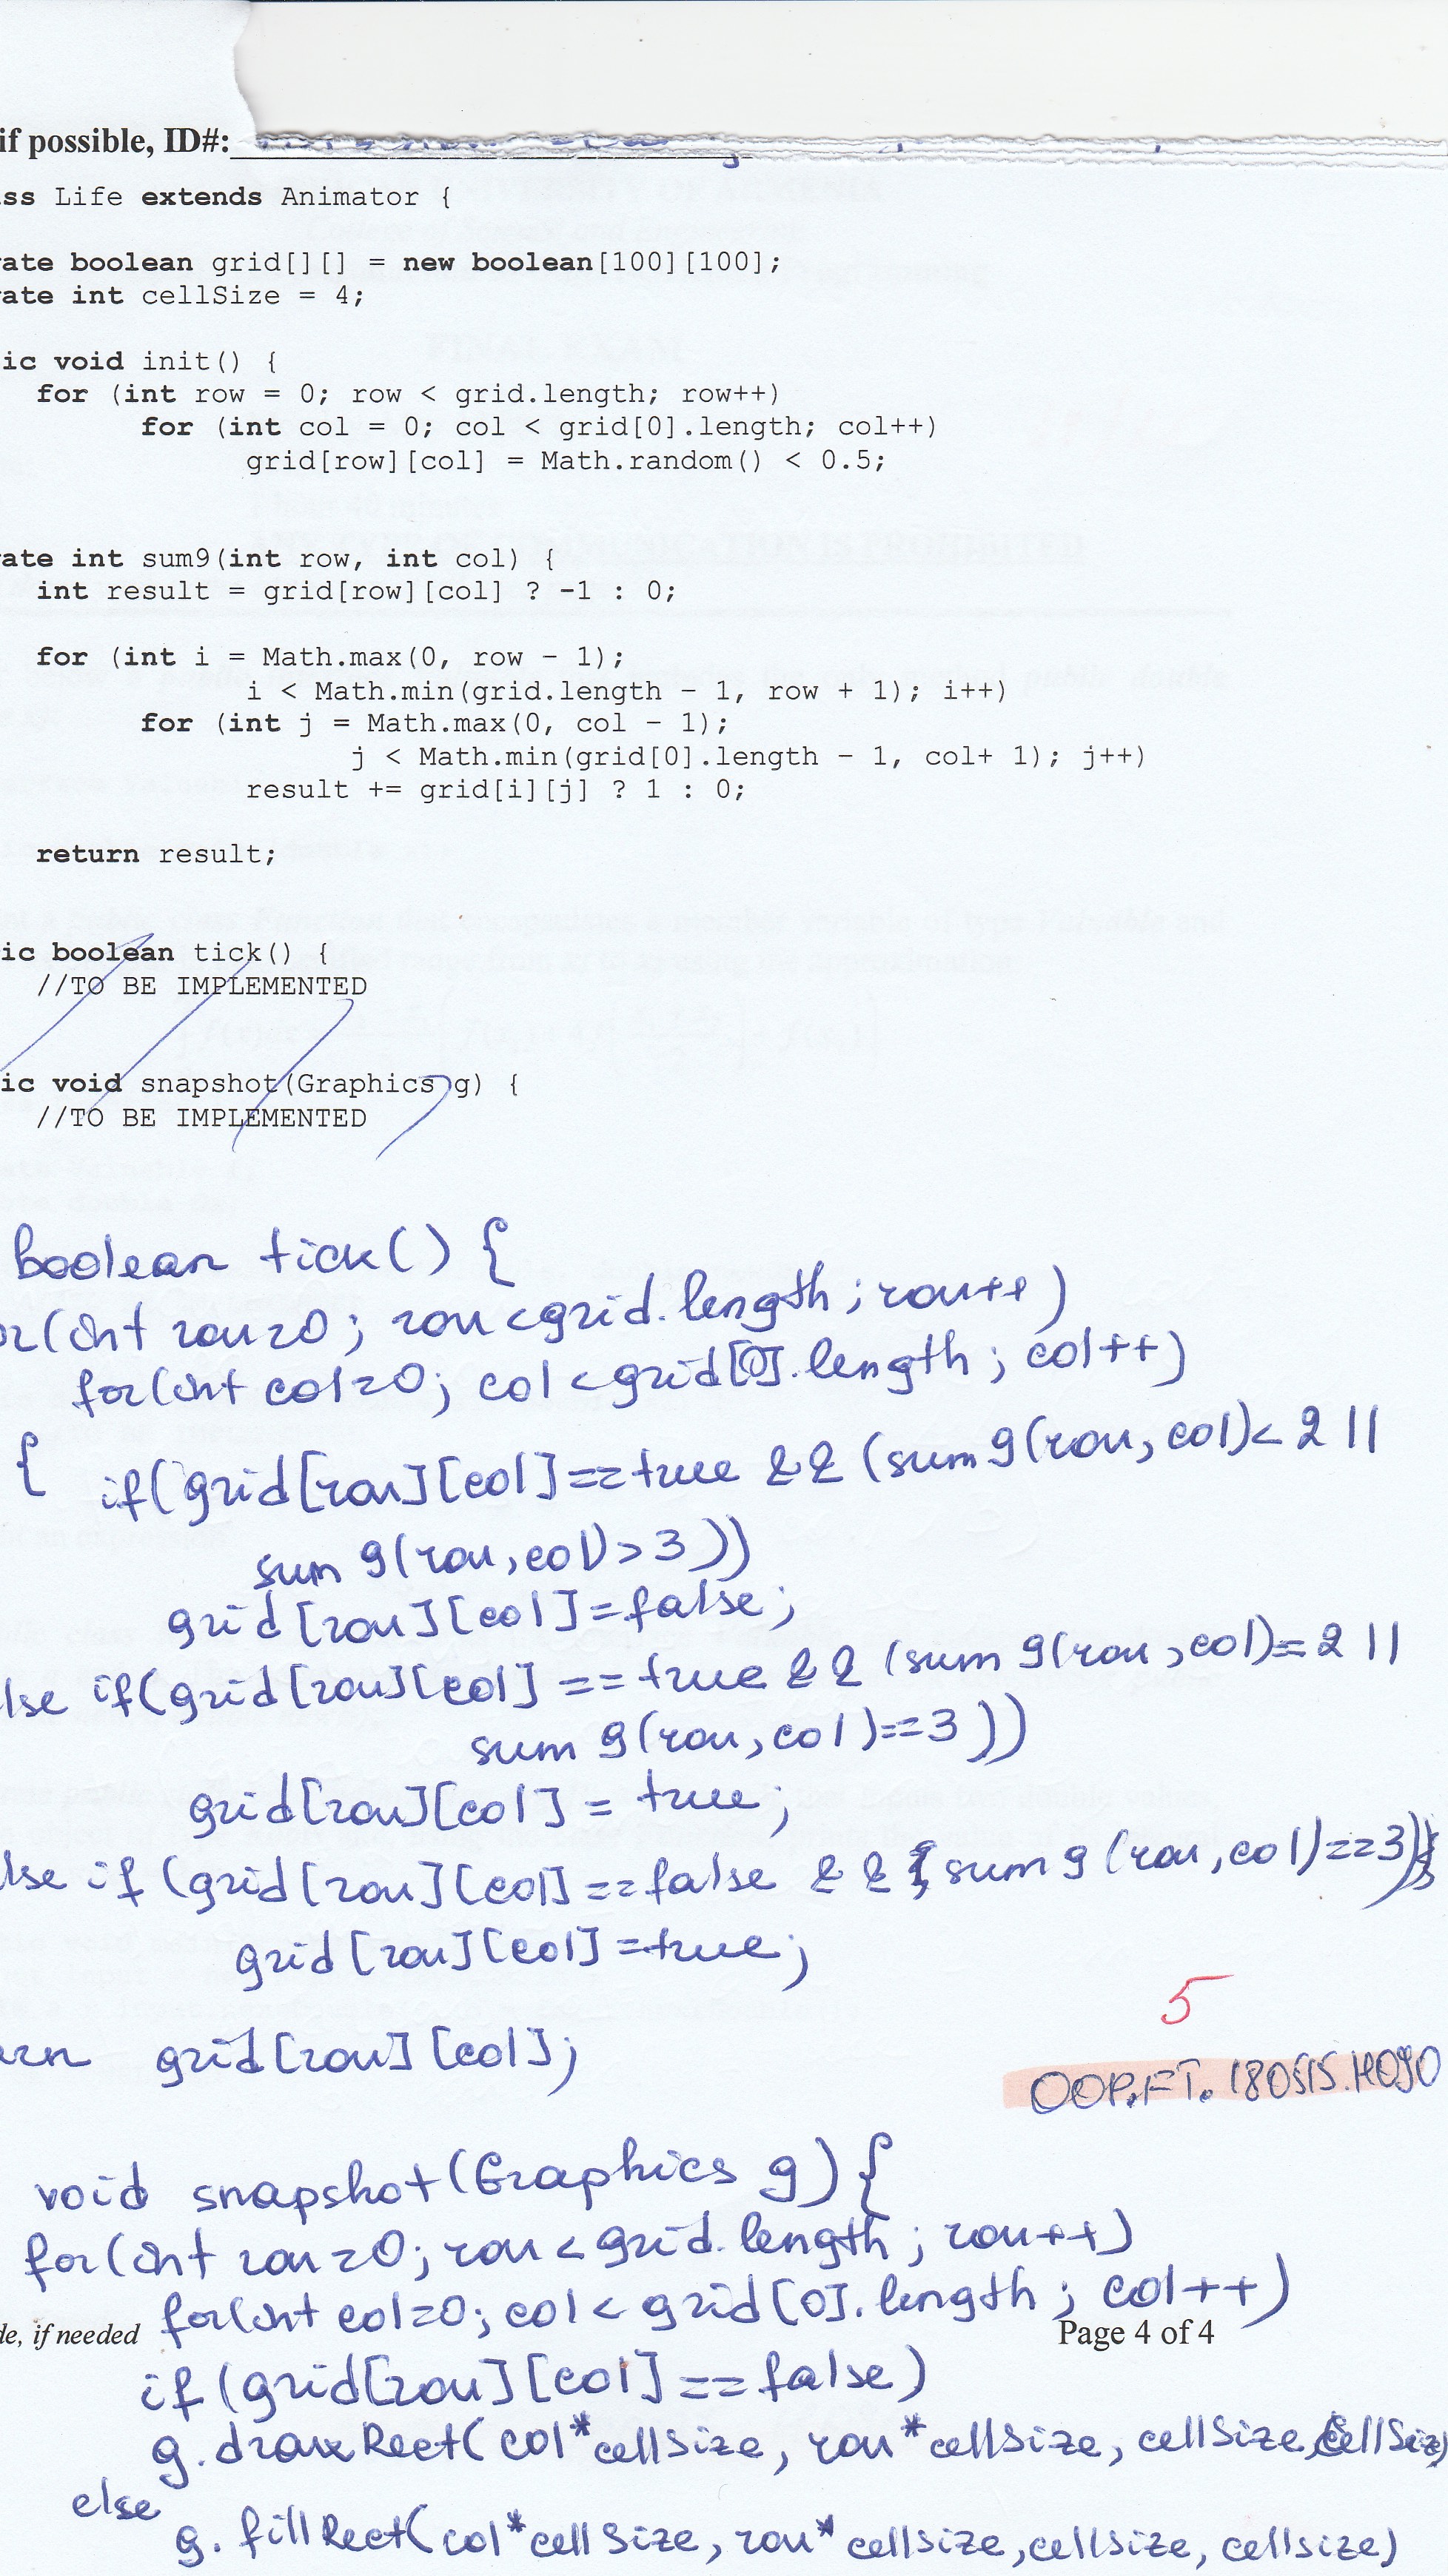 if possible, ID#:
ss Life extends Animator {
ate boolean grid[][] = new boolean[100][100];
ate int cellSize = 4;
ic void init() {
for (int row = 0; row < grid.length; row++)
for (int col = 0; col < grid[0].length; col++)
grid[row][col] = Math.random() < 0.5;
ate int sum9(int row, int col) {
int result = grid[row][col] ? -1 : 0;
for (int i = Math.max(0, row - 1);
i < Math.min(grid.length - 1, row + 1); i++)
for (int j = Math.max(0, col - 1);
j < Math.min(grid[0].length - 1, col+ 1); j++)
result += grid[i][j] ? 1 : 0;
return result;
ic boolean tick() {
//TO BE IMPLEMENTED
ic void snapshot(Graphics g) {
//TO BE IMPLEMENTED
boolean tick() {
or(int row=0; row<grid.length; row++)
for(int col=0; col<grid[0].length; col++)
{ if(grid[row][col]==true && (sum9(row,col)<2 ||
sum9(row,col)>3))
grid[row][col]=false;
lse if(grid[row][col]==true && (sum9(row,col)==2 ||
sum9(row,col)==3))
grid[row][col]=true;
lse if(grid[row][col]==false && (sum9(row,col)==3))
grid[row][col]=true;
5
urn grid[row][col];
OOP.FT.180515.H090
void snapshot(Graphics g){
for(int row=0; row<grid.length; row++)
for(int col=0; col<grid[0].length; col++)
de, if needed
Page 4 of 4
if(grid[row][col]==false)
g.drawRect(col*cellSize, row*cellSize, cellSize, cellSize)
else
g.fillRect(col*cellSize, row*cellsize, cellsize, cellsize)